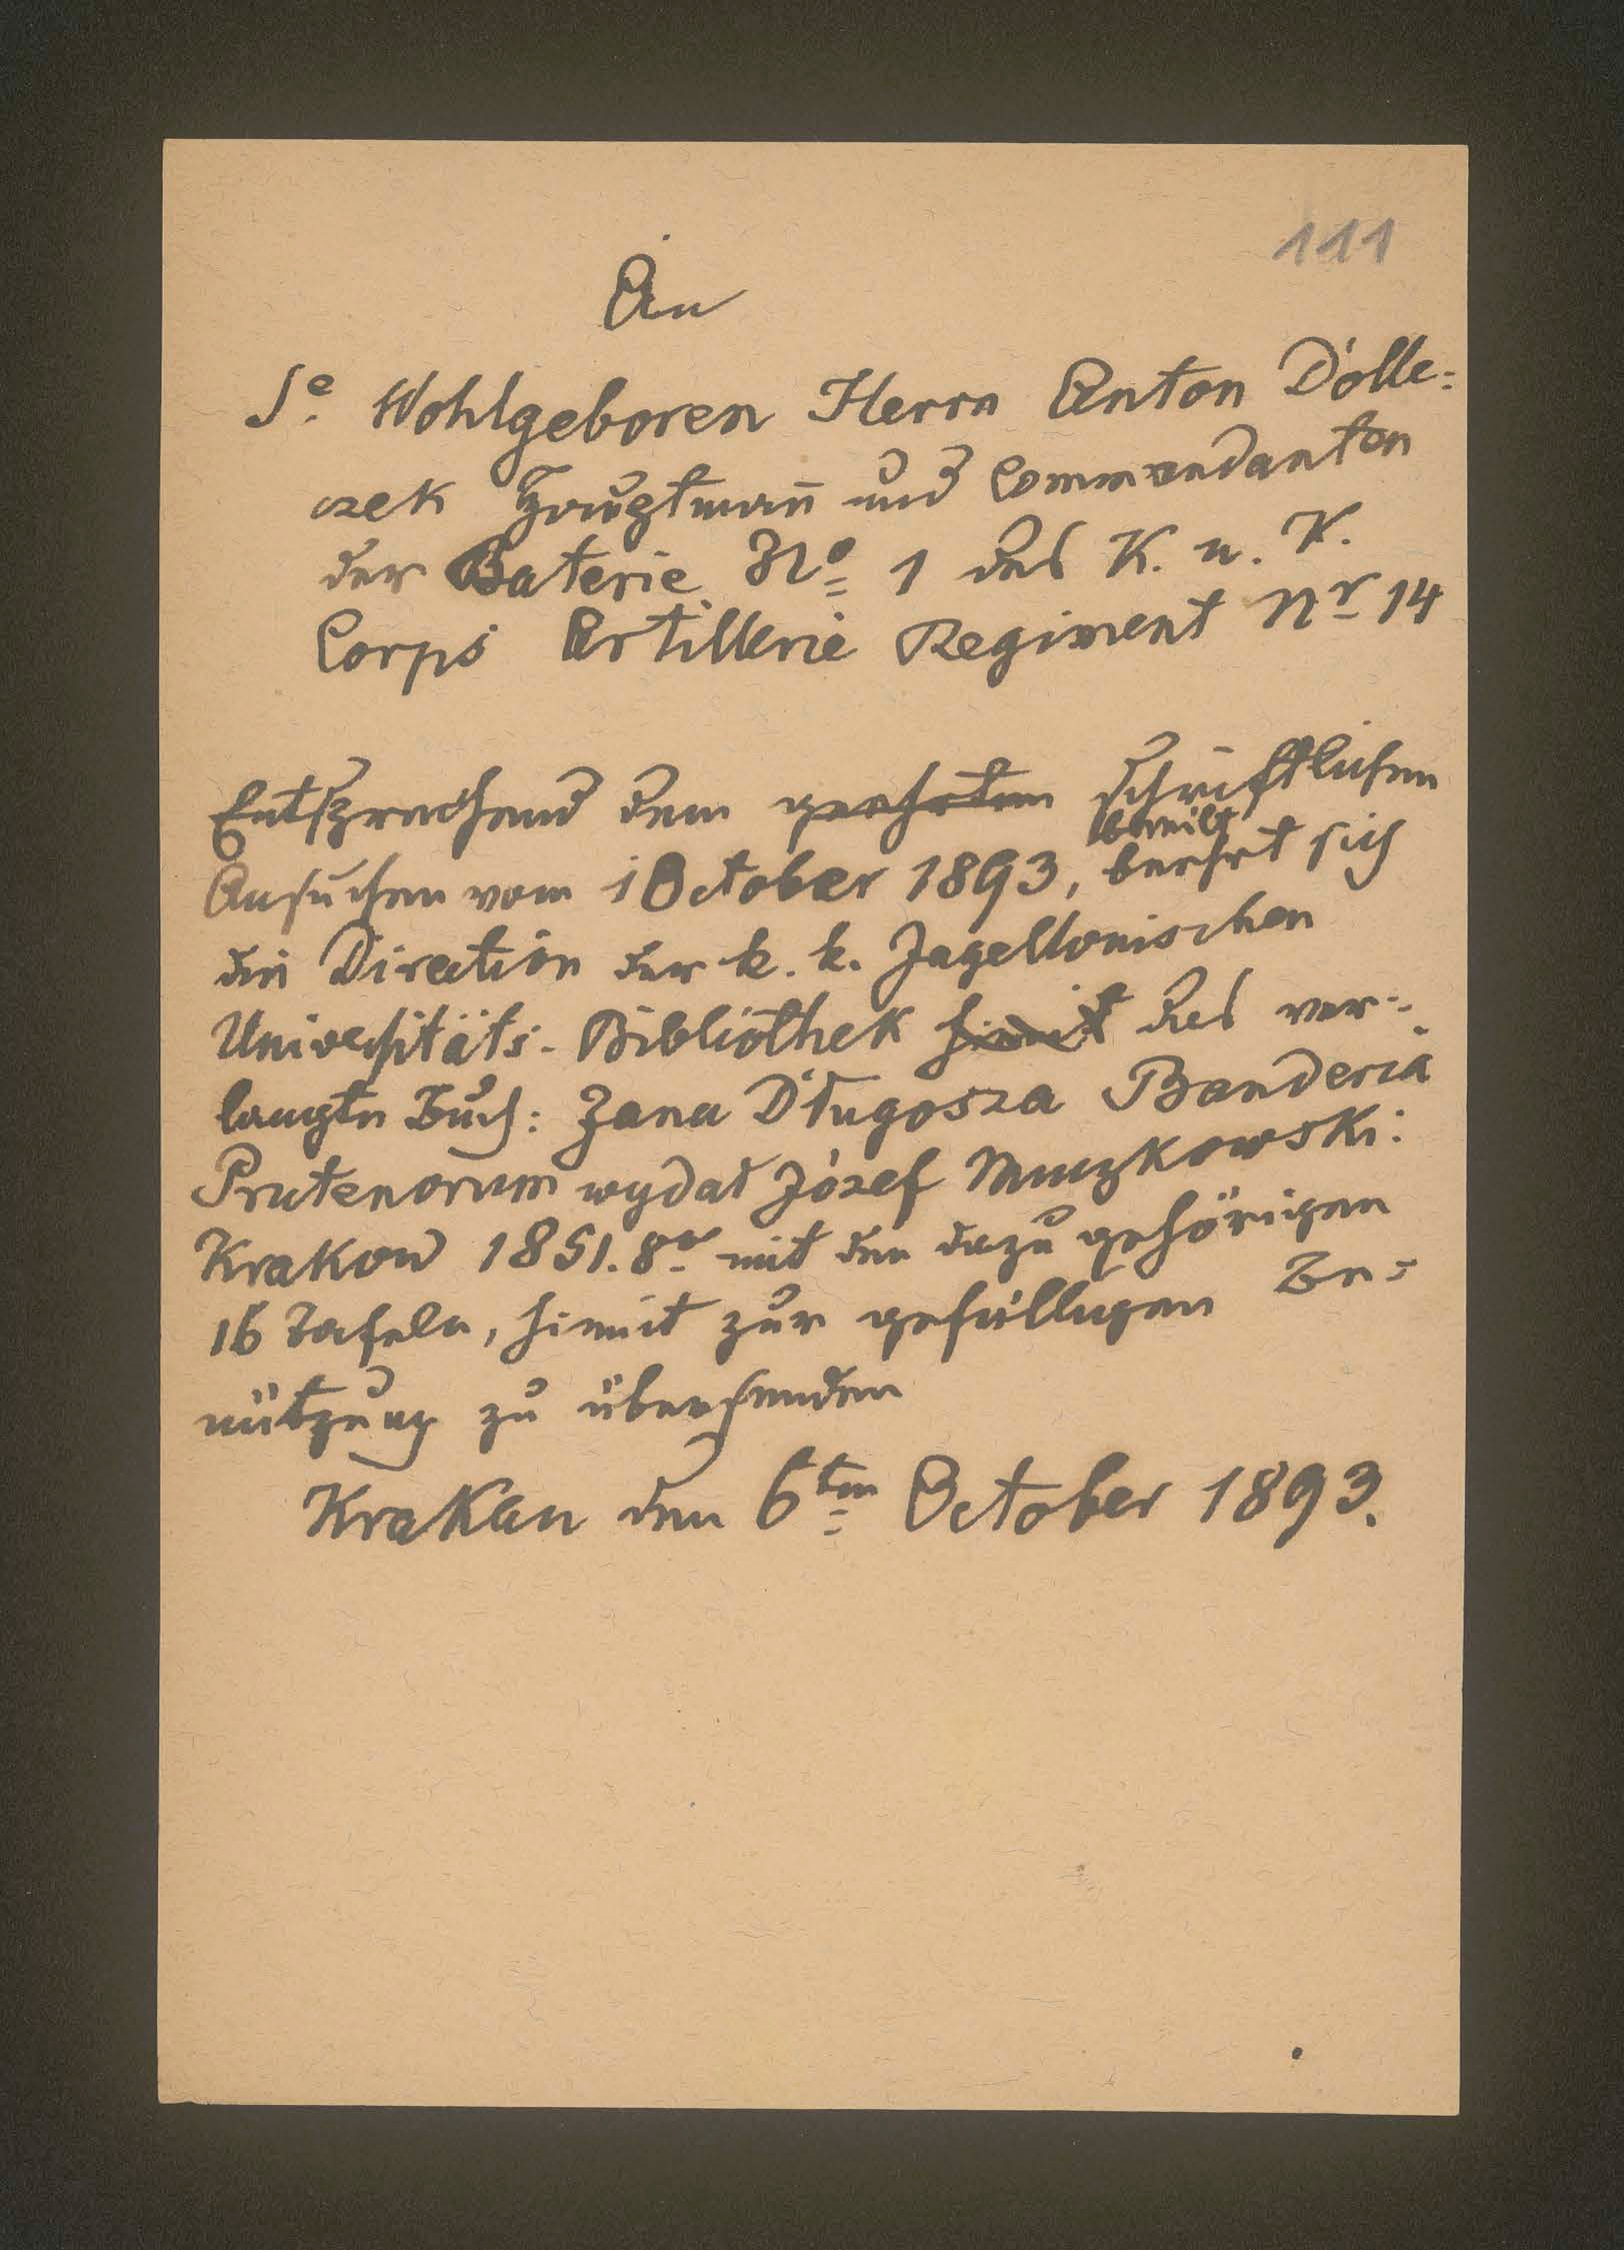 111
An
Se. Wohlgeboren Herrn Anton Dolle-
czek Hauptmañ und Commandanten
der Baterie No 1 des K. u. K.
Corps Artillerie Regiment Nr 14
Entsprechend dem geehrten schriftlichen
beeilt
Ansuchen vom 1 October 1893, beehrt sich
die Direction der k. k. Jagellonischen
Universitäts-Bibliothek hiemit das ver-
langte Buch: Jana Długosza Banderia
Prutenorum wydał Józef Muczkowski:
Krakow 1851. 8o mit den dazu gehörigen
16 Tafeln, hiemit zur gefälligen Be-
nützung zu übersenden
Krakau den 6ten October 1893.